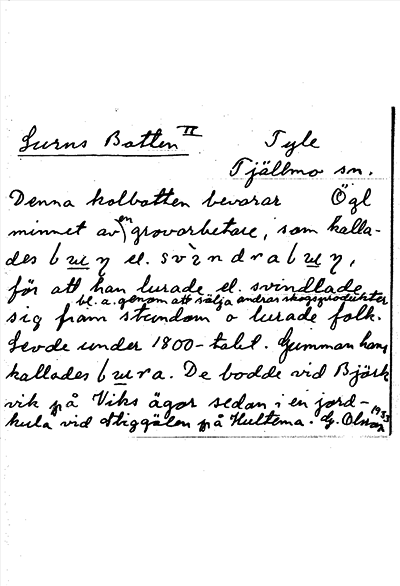 Lurns Botten II Tyle
Tjällmo sn.
Denna kolbotten bevarar Ögl
minnet av en grovarbetare, som kalla-
des
för att han lurade el. svindlade
bl. a. genom att sälja andras skogsprodukter
sig fram stundom o lurade folk.
Levde under 1800-talet. Gumman hans
kallades De bodde vid Björk
vik på Viks ägor sedan i en jord-
kula vid på Hultema. G. Olson 1933